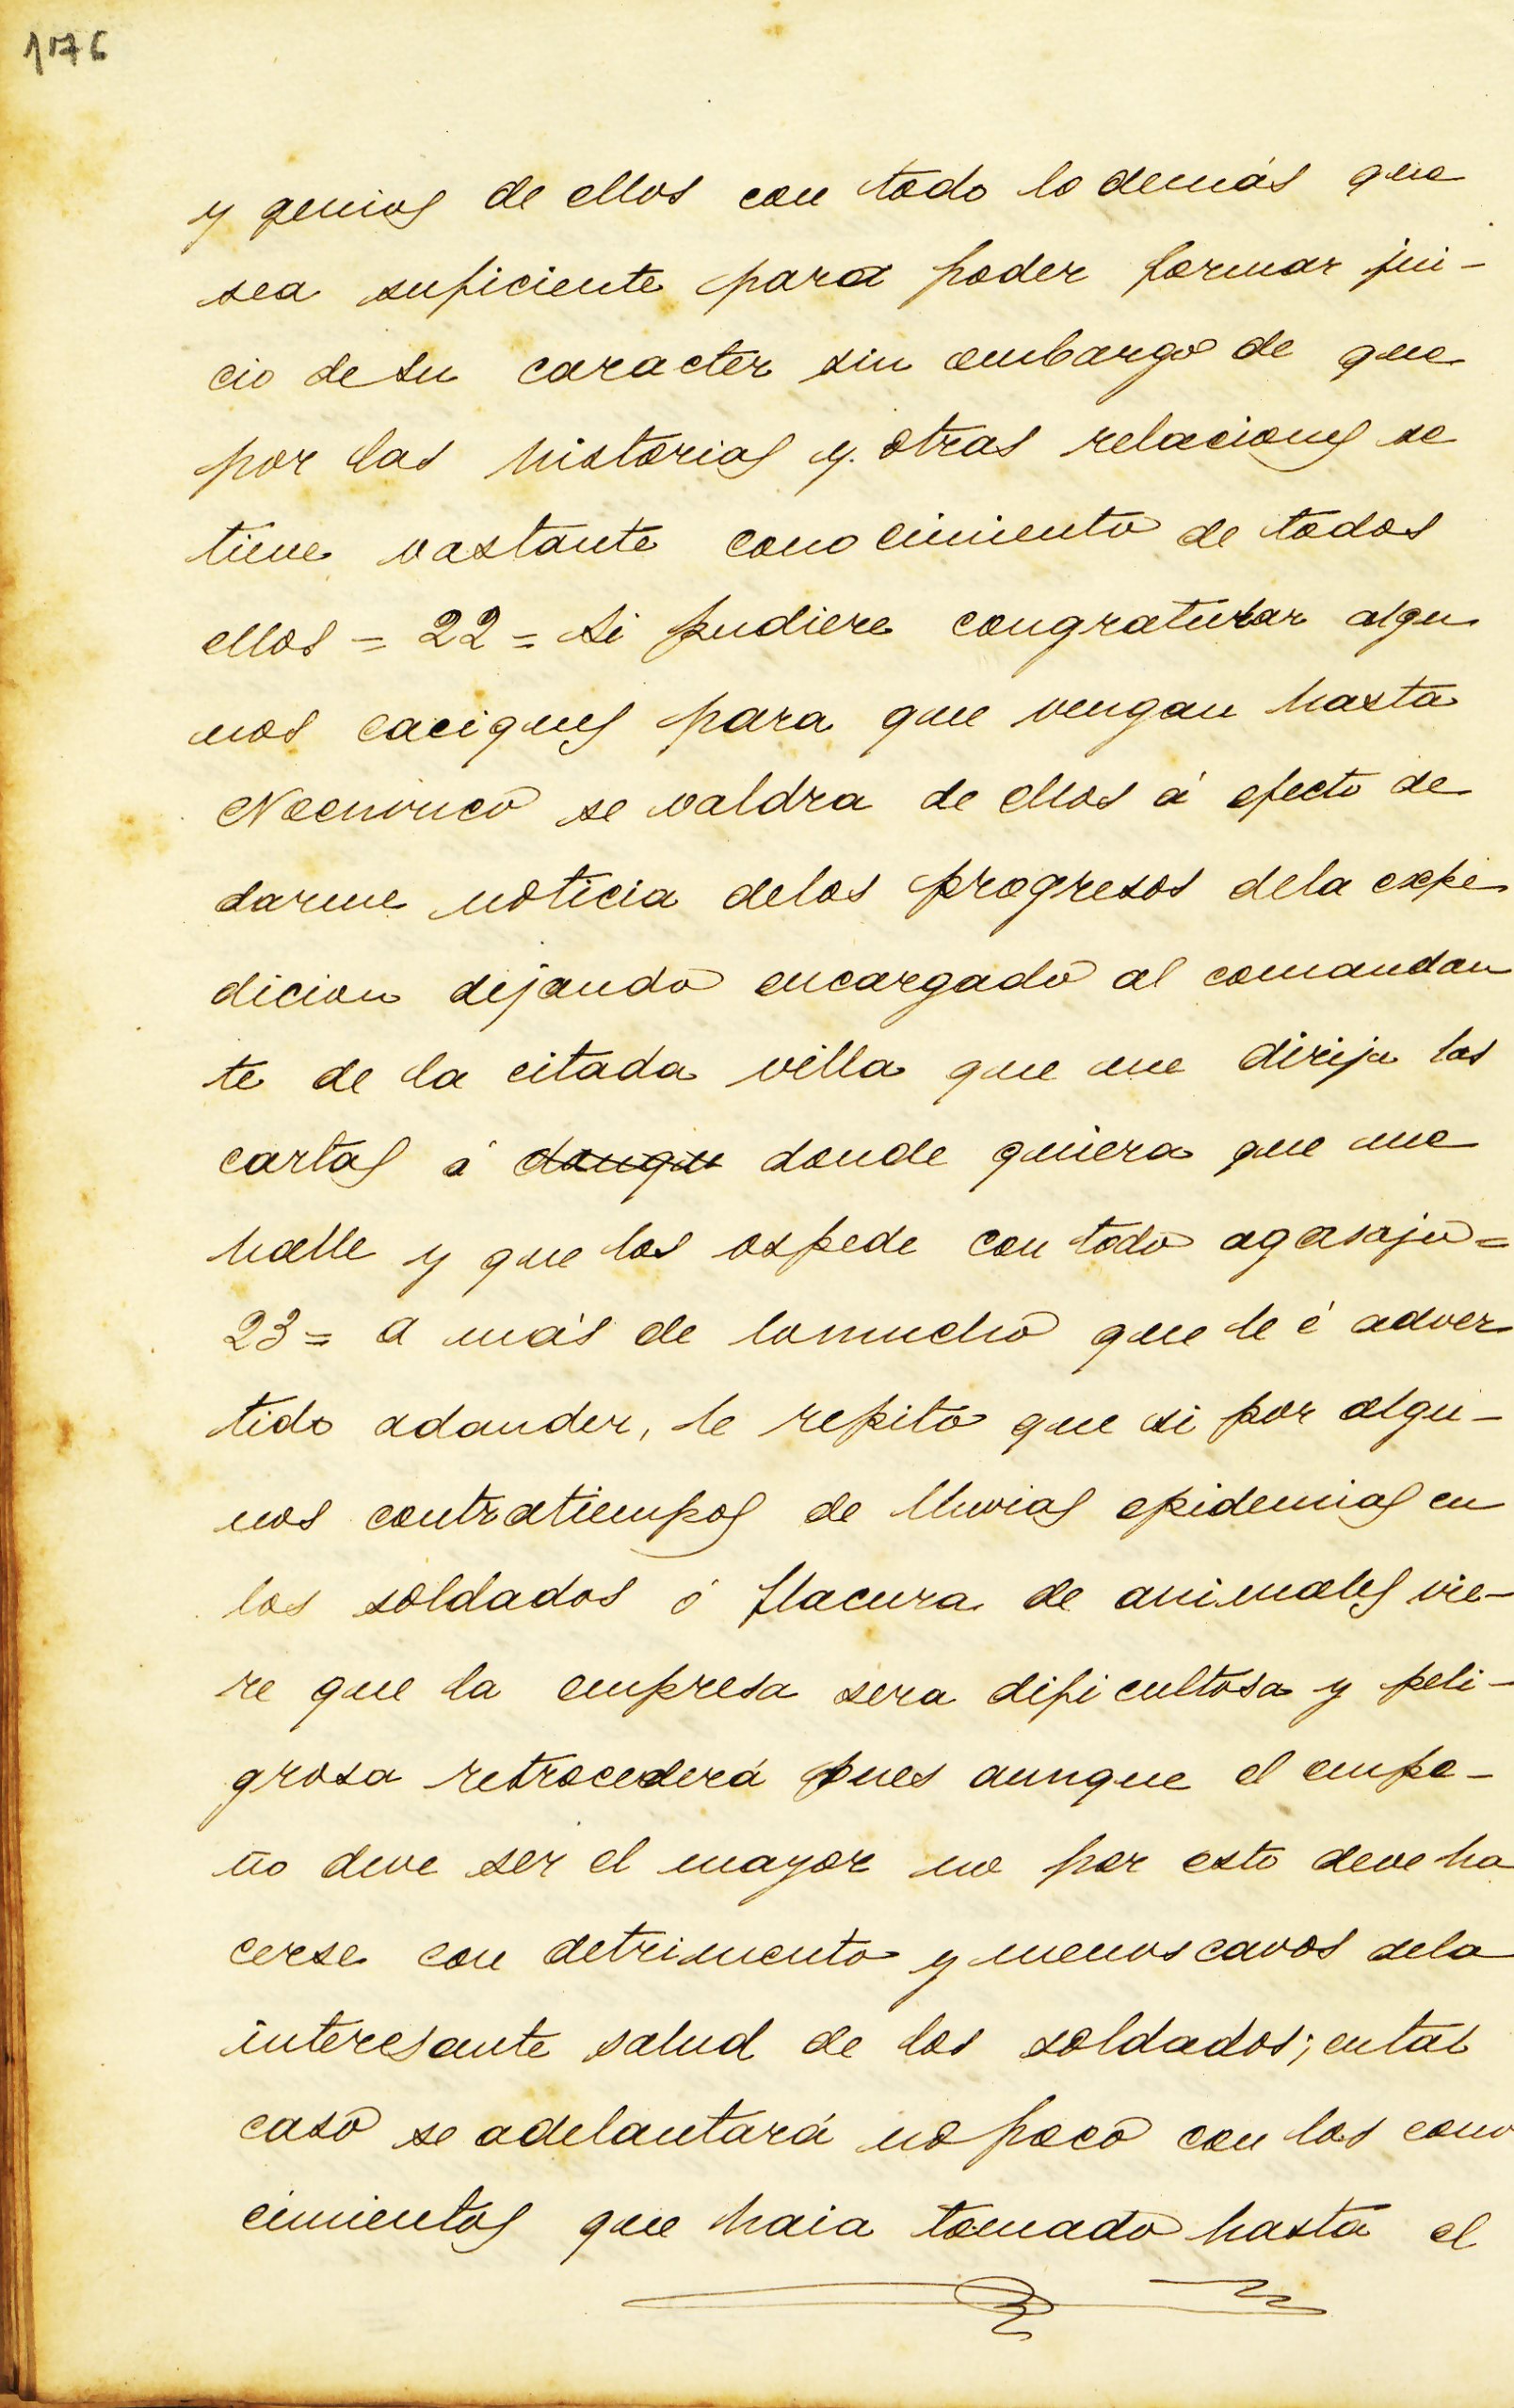 1176
y genios de ellos con todo lo demás que
sea suficiente para poder formar jui-
cio de su caracter sin embargo de que
por las historias y otras relaciones se
tiene vastante conocimiento de todos
ellos = 22 = Si pudiere congratular algu
nos caciques para que vengan hasta
se valdra de ellos á efecto de
darme noticia delos progresos dela expe
dicion dejando encargado al comandan
te de la citada villa que me dirija las
cartas á donde quiera que me
halle y que los ospede con todo agasajo =
23 = A más de lomucho que le é adver
tido adander, le repito que si por algu-
nos contratiempos de lluvias epidemias en
los soldados ó flacura de animales vie-
re que la empresa sera dificultosa y peli-
grosa retrocederá pues aunque el empe-
ño deve ser el mayor no por esto deve ha
cerse con detrimento y menoscavos dela
interesante salud de los soldados; ental
caso se adelantará no poco con los cono
cimientos que haia tomado hasta el